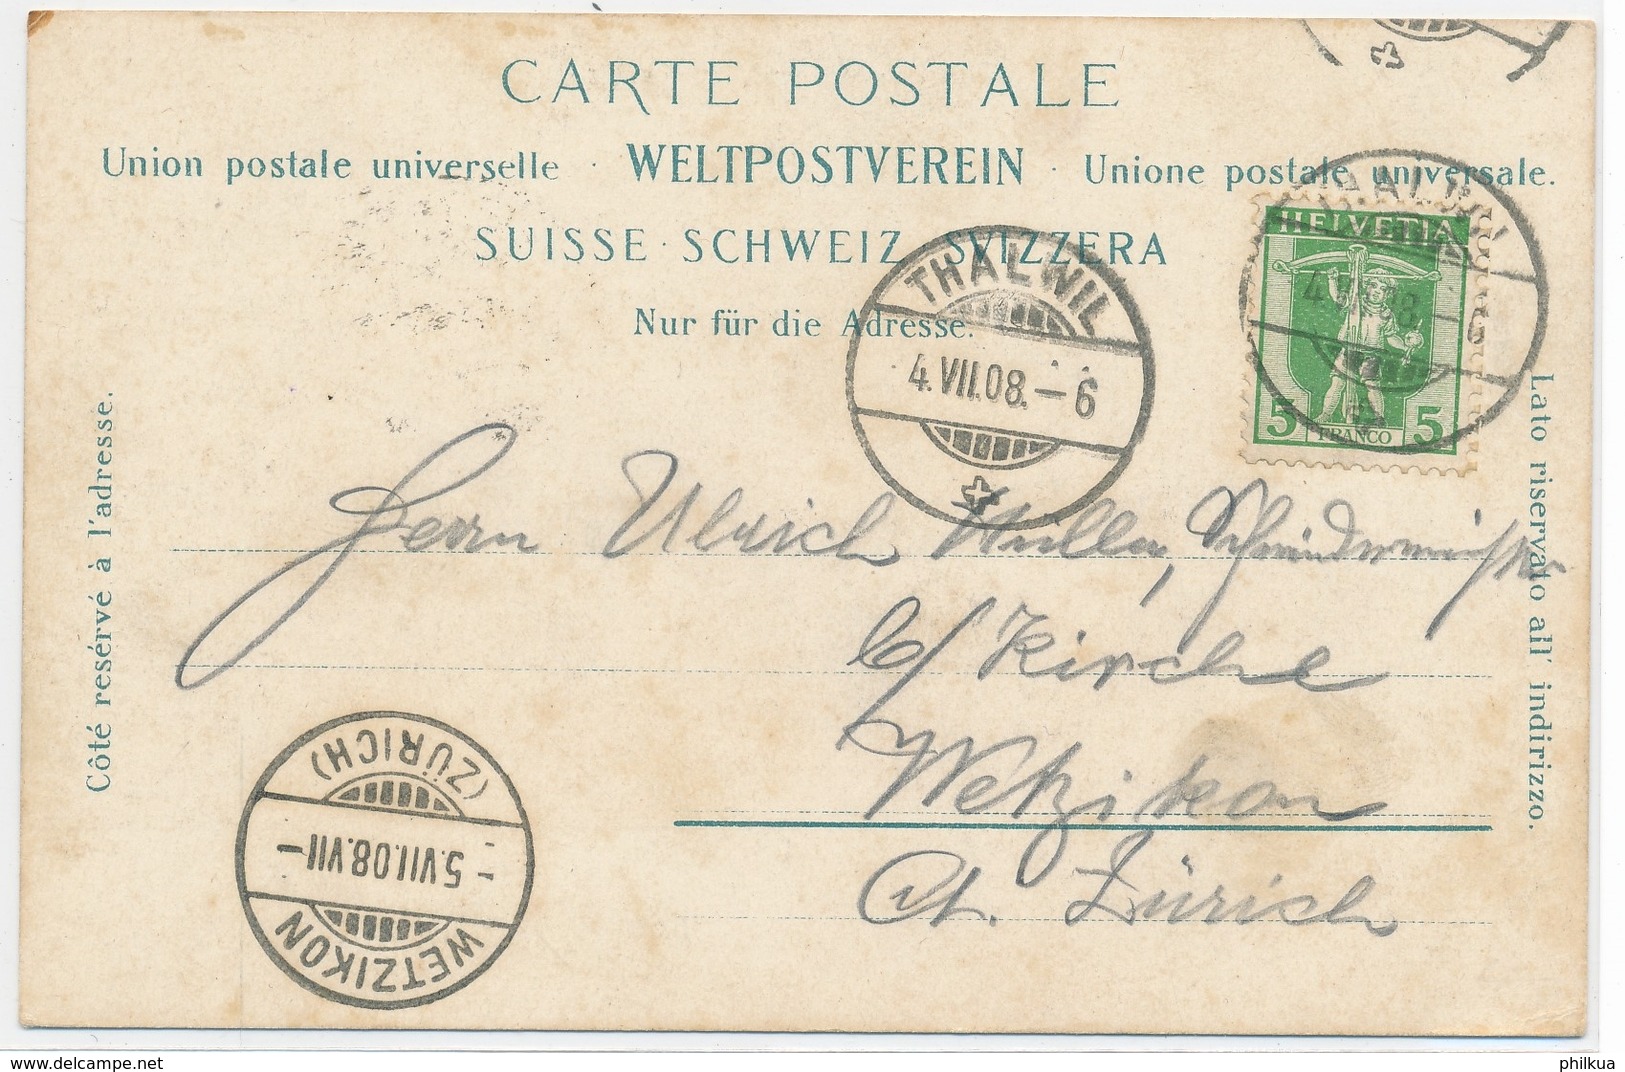 CARTE POSTALE
Union postale universelle · WELTPOSTVEREIN · Unione postale universale.
SUISSE · SCHWEIZ · SVIZZERA
Nur für die Adresse.
HELVETIA
4.VII.08
5 FRANCO 5
THALWIL
4.VII.08.–6
Côté resérvé à l'adresse.
Lato riservato all' indirizzo.
Herrn Ulrich Müller, Schneidermeister
b/Kirche
Wetzikon
Ct. Zürich
(ZÜRICH)
- 5.VII.08.VII-
WETZIKON
philkua